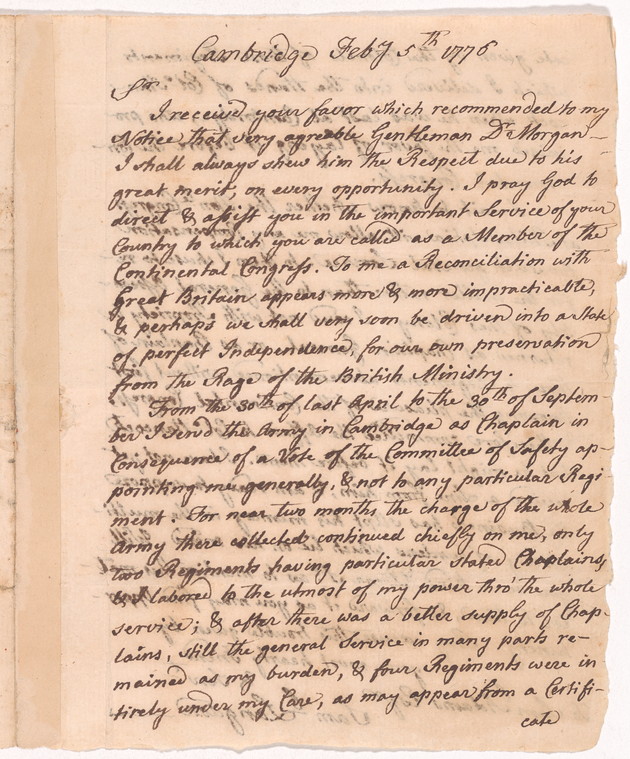 Cambridge Feby 5th 1776
Sir
I received your favor which recommended to my
Notice that very agreeable Gentleman Dr Morgan—
I shall always shew him the Respect due to his
great merit, on every opportunity. I pray God to
direct & assist you in the important Service of your
Country to which you are called as a Member of the
Continental Congress. To me a Reconciliation with
Great Britain appears more & more impracticable,
& perhaps we shall very soon be driven into a State
of perfect Independence, for our own preservation
from the Rage of the British Ministry.
From the 30th of last April to the 30th of Septem-
ber I serv'd the Army in Cambridge as Chaplain in
Consequence of a Vote of the Committee of Safety ap-
pointing me generally, & not to any particular Regi-
ment. For near two months the charge of the whole
Army there collected continued chiefly on me, only
two Regiments having particular stated Chaplains,
& I labored to the utmost of my power thro' the whole
service; & after there was a better supply of Chap-
lains, still the general Service in many parts re-
mained as my burden, & four Regiments were in
tirely under my Care, as may appear from a Certifi-
cate